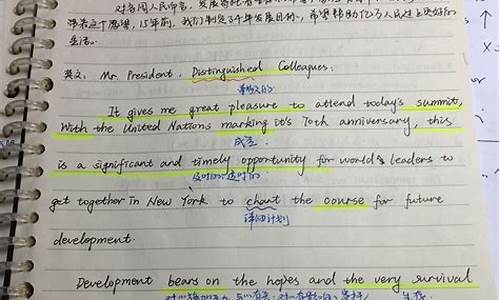 对各国人民而言，发展寄托着
带着这个愿望，15年前，我们制定了千年发展目标，希望帮助亿万人民过上更好的
生活。
英文：Mr. President, Distinguished Colleagues:
尊敬的
It gives me great pleasure to attend today's summit,
With the United Nations marking it's 70th anniversary, this
成立
is a significant and timely opportunity for world's leaders to
及时的；适时的
get together in New York to chant the course for future
详细计划
development.
Development bears on the hopes and the very survival